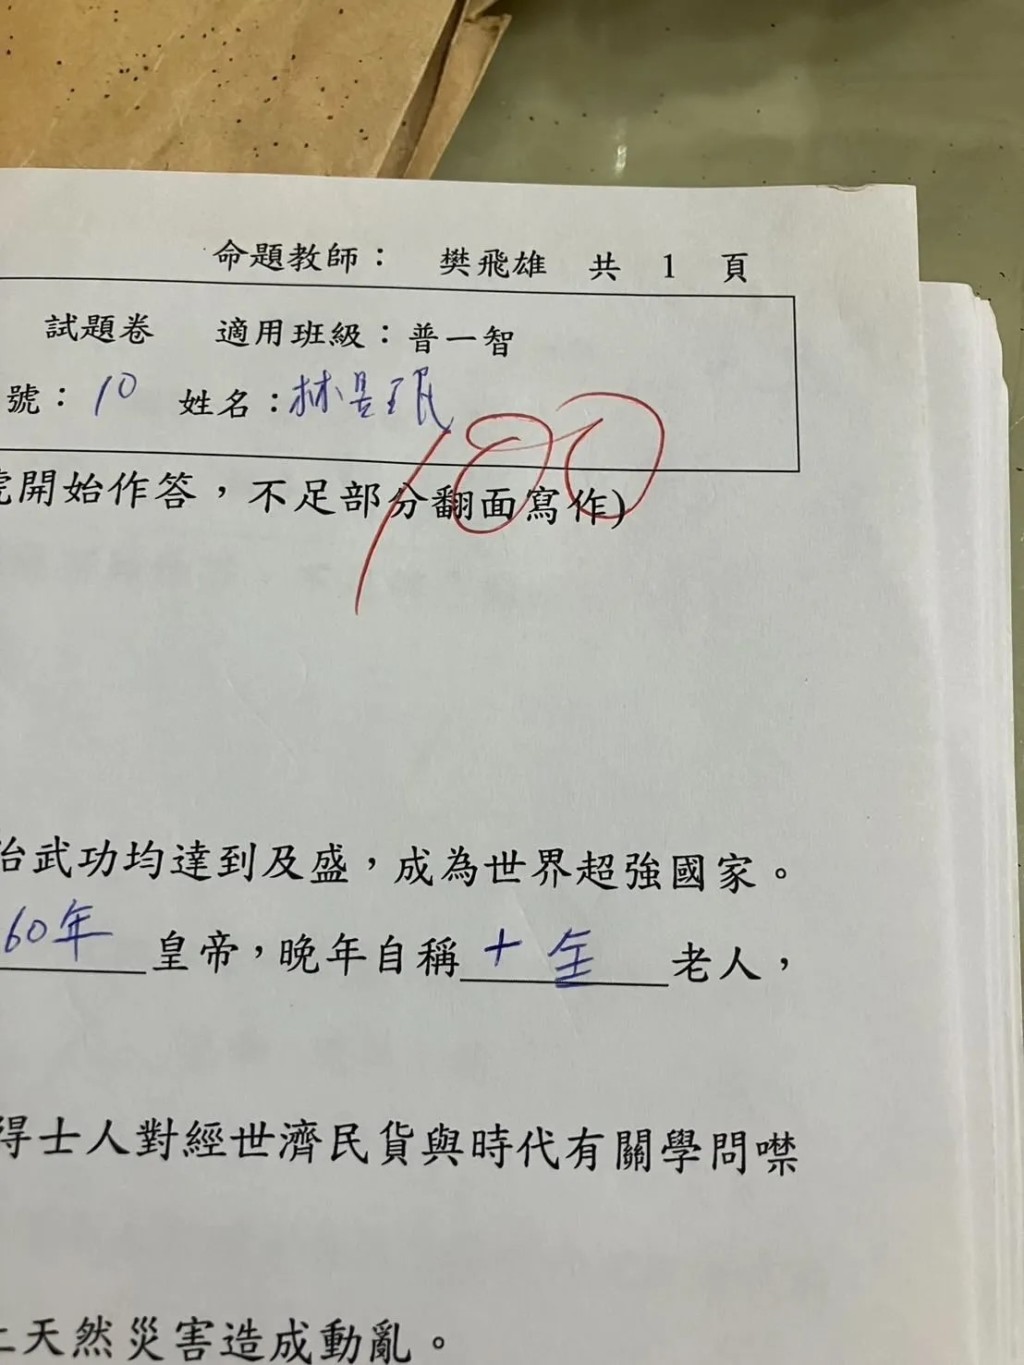 命題教師： 樊飛雄 共 1 頁
試題卷 適用班級：普一智
號：10 姓名：林昱珉
100
號開始作答，不足部分翻面寫作)
治武功均達到及盛，成為世界超強國家。
60年 皇帝，晚年自稱 十全 老人，
得士人對經世濟民貨與時代有關學問噤
上天然災害造成動亂。